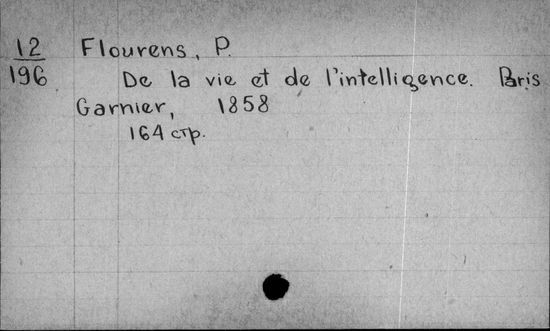 12 Flourens, P.
196 De la vie et de l'intelligence. Paris
Garnier, 1858
164 стр.